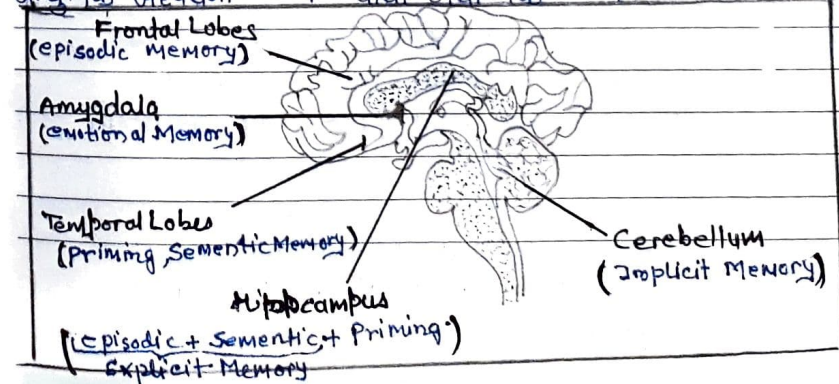 Frontal Lobes
(episodic memory)
Amygdala
(emotional Memory)
Temporal Lobes
(Priming, Sementic Memory)
Cerebellum
(Implicit Memory)
Hippocampus
(Episodic + Sementic + Priming)
Explicit Memory